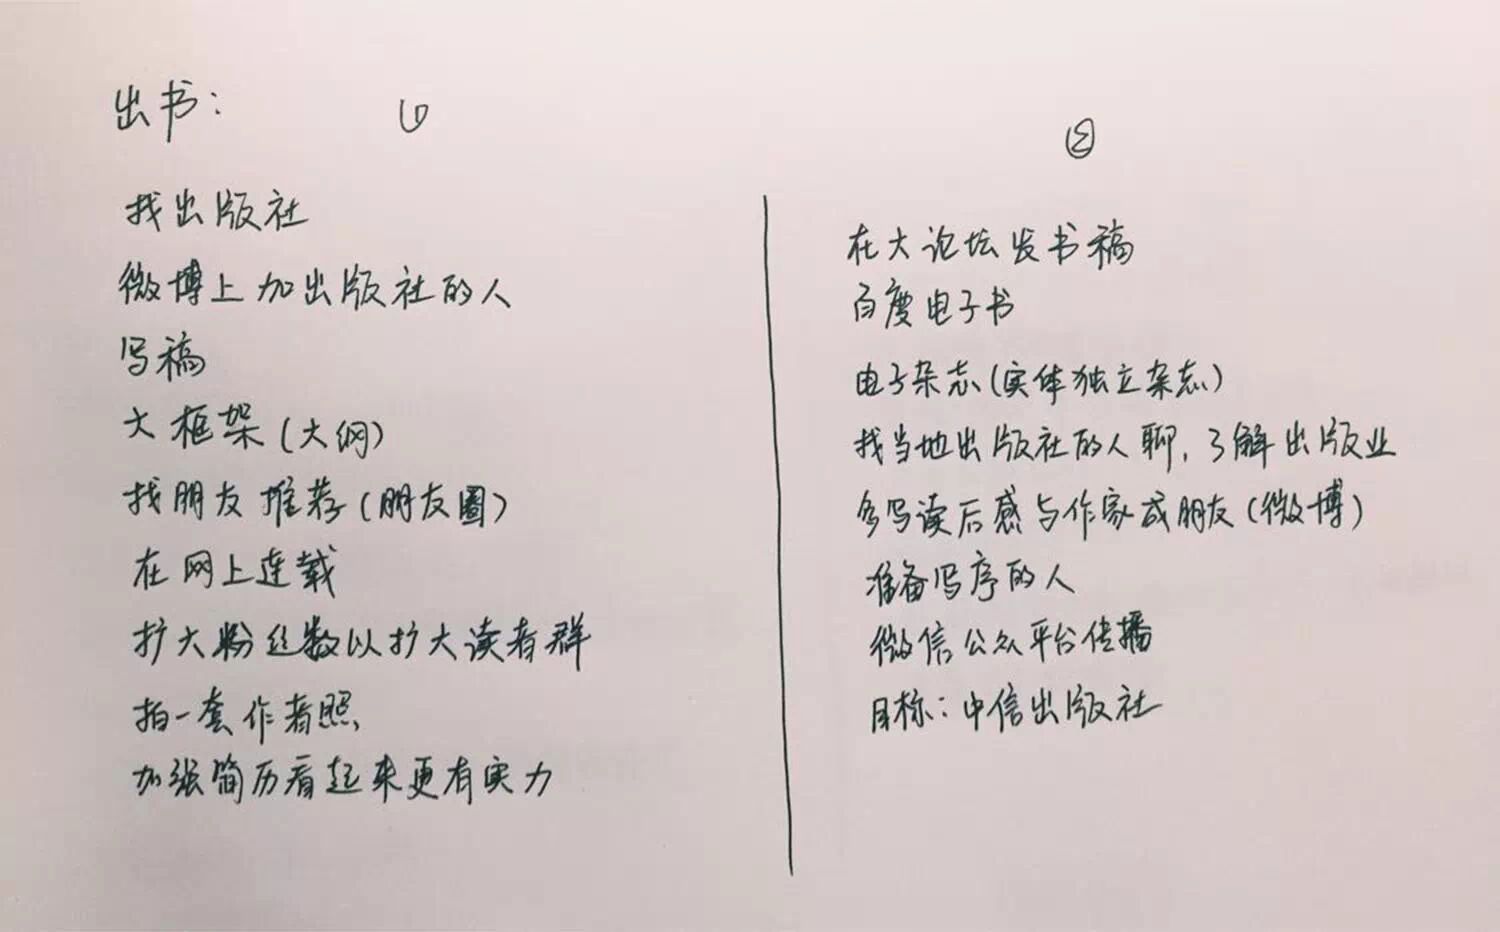 出书：
①
找出版社
微博上加出版社的人
写稿
大框架(大纲)
找朋友推荐(朋友圈)
在网上连载
扩大粉丝数以扩大读者群
拍一套作者照
加张简历看起来更有实力
②
在大论坛发书稿
百度电子书
电子杂志(实体独立杂志)
找当地出版社的人聊,了解出版业
多写读后感与作家成朋友(微博)
准备写序的人
微信公众平台传播
目标：中信出版社